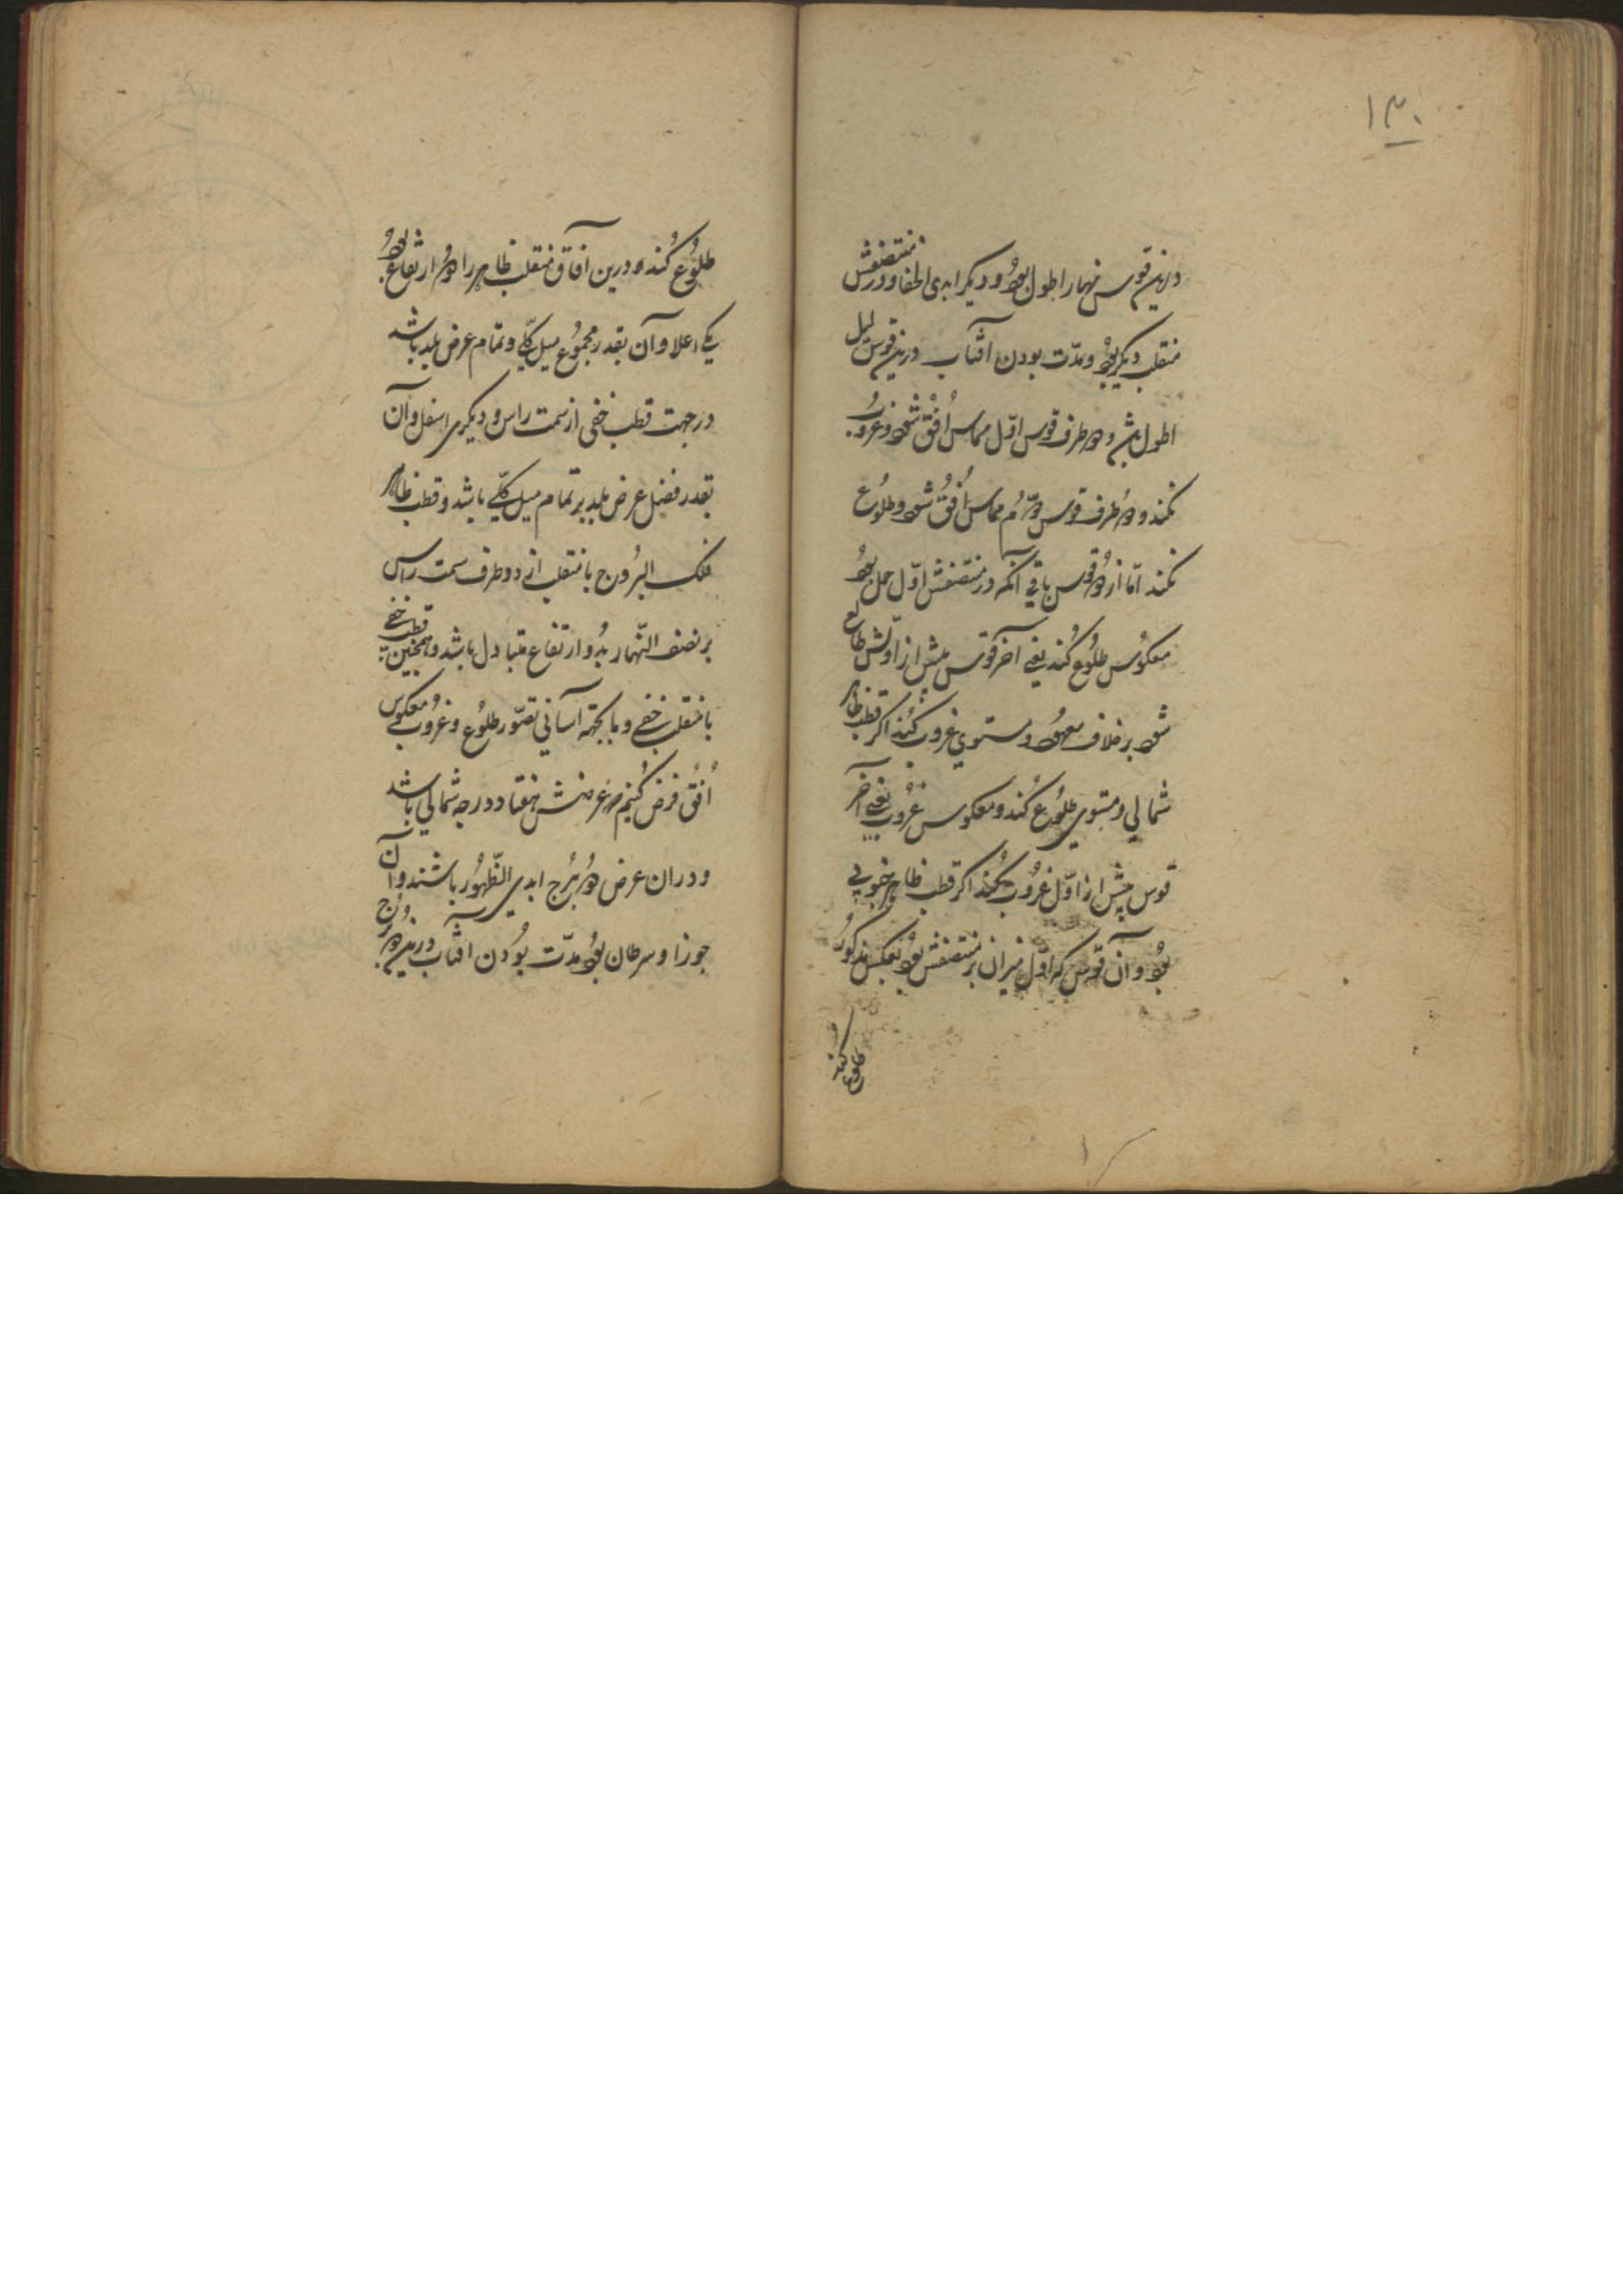 ۱۳۰
درین قوس نهار اطول بود و دیکر ابدی الخفا و در منتصفش
منقلب دیکر بود و مدّت بودن آفتاب درین قوس لیل
اطول باشد و دو طرف قوس اوّل مماس اُفق شود و غروب
نکند و دو طرف قوس دوّم مماس اُفُق شود و طلوُع
نکند امّا از دو قوس باقی آنکه در منتصفش اوّل حمل بود
معکوُس طلوُع کُند یعنی آخر قوس پیش از اوّلش طالع
شود بر خلاف معهود و مستوی غروب کُند اکر قطب ظاهر
شمالی و مستوی طلوُع کُند و معکوس غروُب یعنی آخر
قوس پیش از اوّل غروُب کُند اکر قطب ظاهر جنوبی
بود و آن قوس که اوّل میزان بر منتصفش بود بعکس مذکوُر
طلوع کند
طلوُع کُند و درین آفاق منقلب ظاهر را دو ارتفاع بود
یکی اعلا و آن بقدر مجموُع میل کلّی و تمام عرض بلد باشد
در جهت قطب خفی از سمت راس و دیکری اسفل و آن
بقدر فضل عرض بلد بر تمام میل کلّی باشد و قطب ظاهر
فلک البرُوج با منقلب از دو طرف سمت راس
بر نصف النّهار بدو ارتفاع متبادل باشد و همچنین قطب خفی
با منقلب خفی و بایجهة آسانی تصوّر طلوُع و غروُب معکوس
اُفقی فرض کُنیم که عرضش هفتاد درجه شمالی باشد
و در ان عرض دو بُرج ابدی الظّهوُر باشند و آن
جوزا و سرطان بود مدّت بوُدن افتاب درین دو برُج